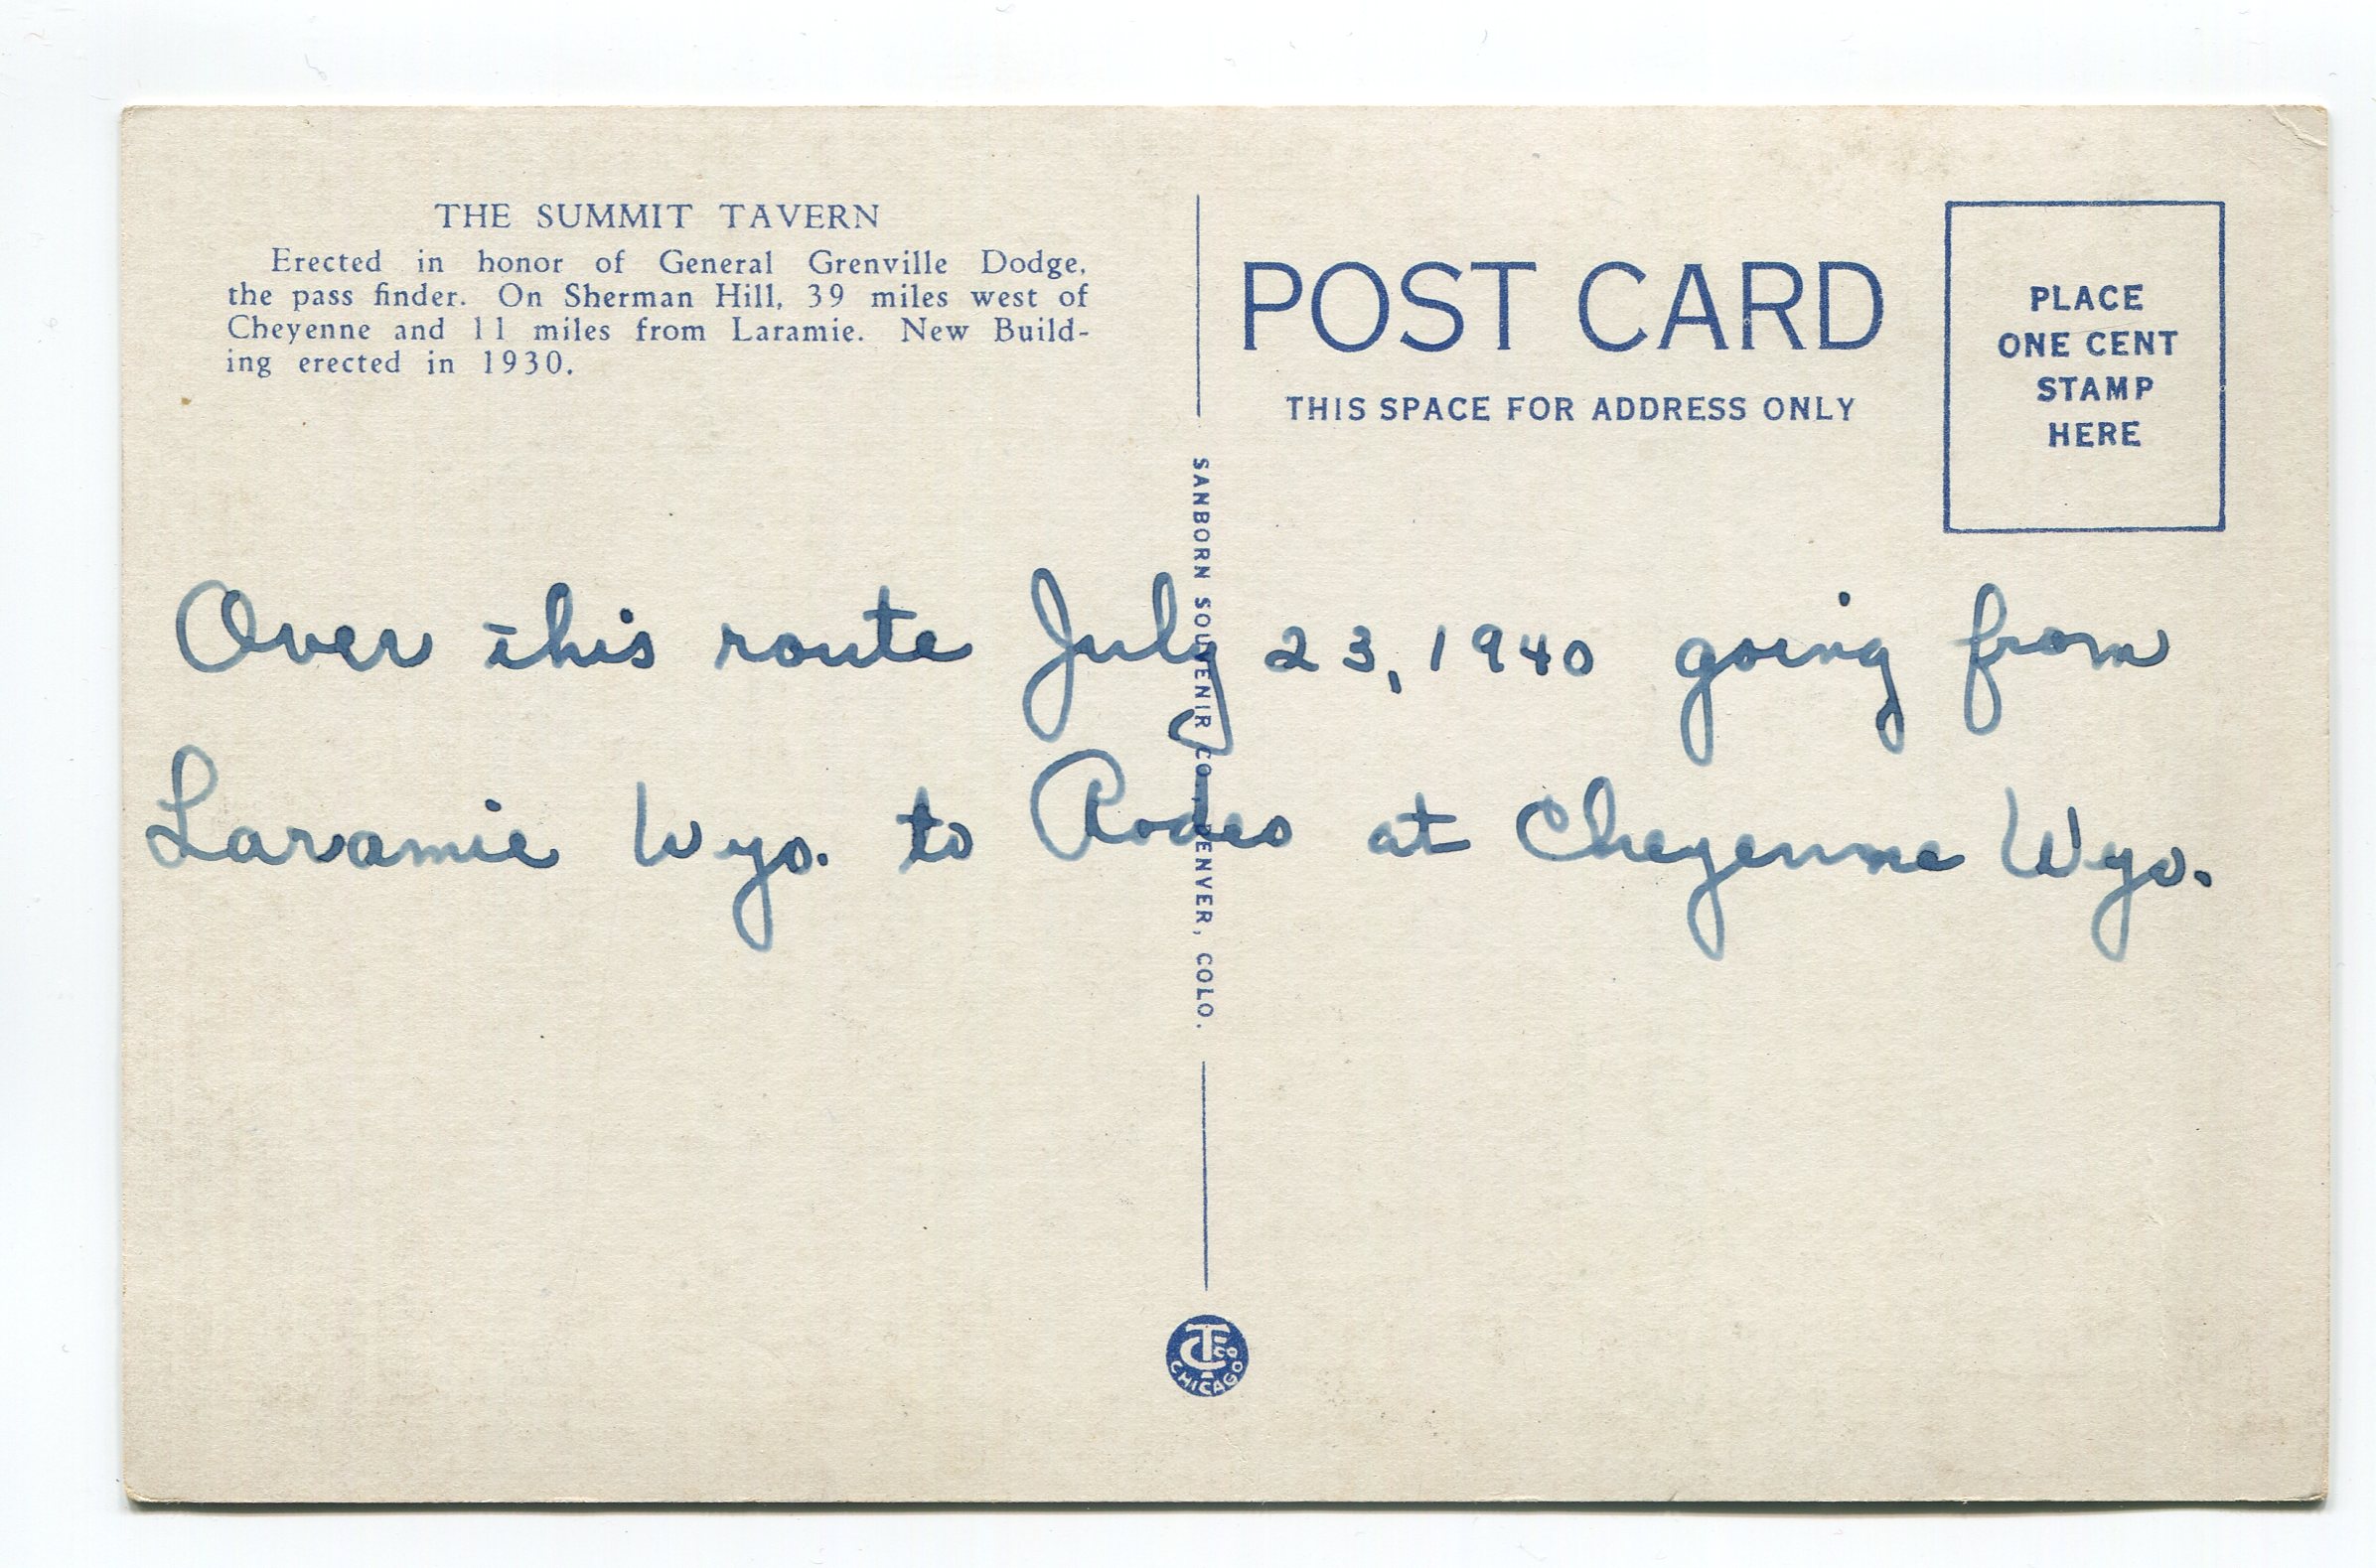 THE SUMMIT TAVERN
Erected in honor of General Grenville Dodge,
the pass finder. On Sherman Hill, 39 miles west of
Cheyenne and 11 miles from Laramie. New Build-
ing erected in 1930.
POST CARD
THIS SPACE FOR ADDRESS ONLY
PLACE
ONE CENT
STAMP
HERE
SANBORN SOUVENIR CO., DENVER, COLO.
Over this route July 23, 1940 going from
Laramie Wyo. to Rodeo at Cheyenne Wyo.
CT Co
CHICAGO